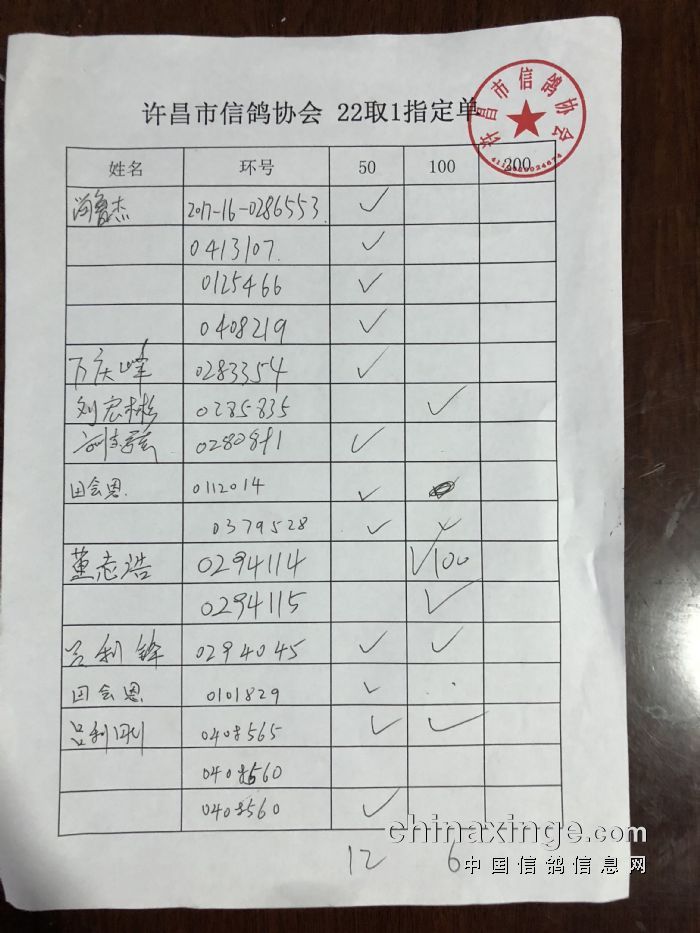 许昌市信鸽协会 22取1指定单
许昌市信鸽协会
姓名 环号 50 100 200
2017-16-0286553 ✓
0413107 ✓
0125466 ✓
0408219 ✓
万庆峰 0283354 ✓
刘宏彬 0285835 ✓
✓
田会恩 0112014 ✓
0379528 ✓
董志浩 0294114 ✓100
0294115 ✓
吕利锋 0294045 ✓ ✓
田会恩 0101829 ✓
吕利刚 0408565 ✓ ✓
0408560
0408560 ✓
12 6
chinaxinge.com
中国信鸽信息网